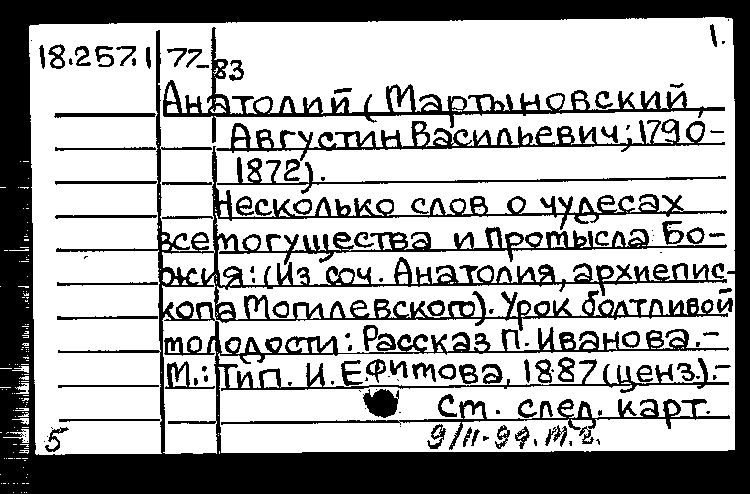 1.
18.257.1 77-83
Анатолий (Мартыновский,
Августин Васильевич; 1790-
1872).
Несколько слов о чудесах
всемогущества и Промысла Бо-
жия: (Из соч. Анатолия, архиепис-
копа Могилевского). Урок болтливой
молодости: Рассказ П. Иванова.-
М.: Тип. И. Ефимова, 1887 (ценз.).-
См. след. карт.
5 9/II-99.